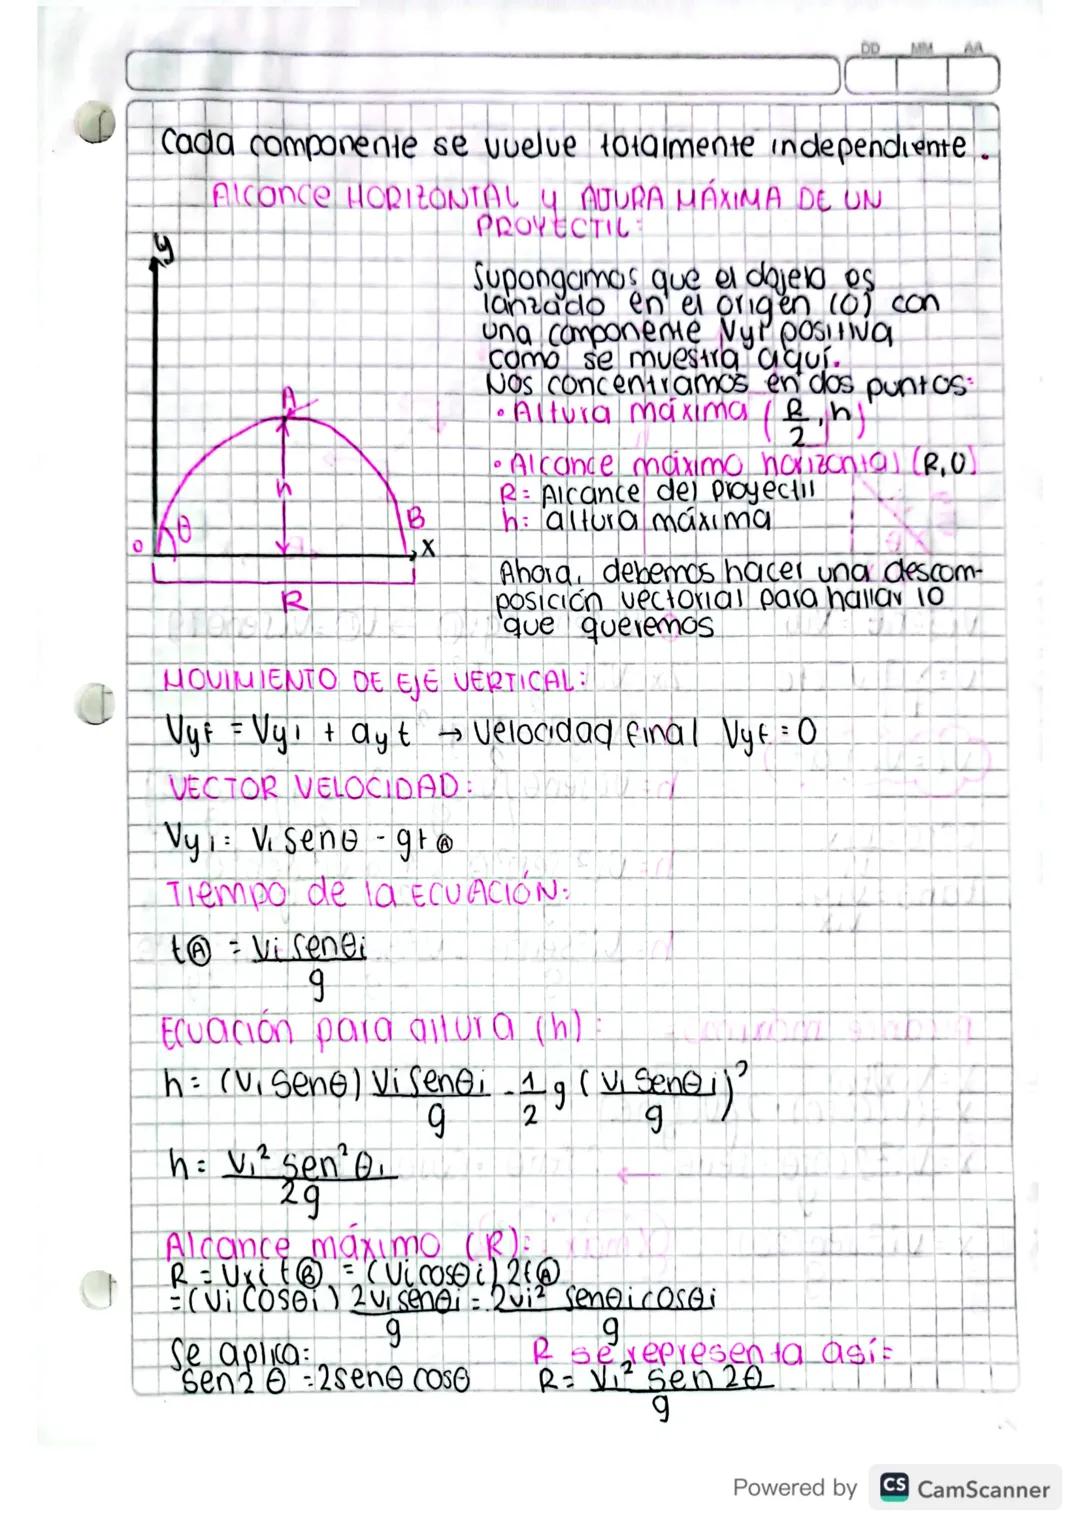 DD MM AA
Cada componente se vuelve totalmente independiente.
Alcance HORIZONTAL y ALTURA MÁXIMA DE UN
PROYECTIL:
y
A
h
θ
B
o
x
R
Supongamos que el objeto es
lanzado en el origen (0) con
una componente Vyi positiva
como se muestra aquí.
Nos concentramos en dos puntos:
• Altura máxima (R/2, h)
• Alcance máximo horizontal (R,0)
R: Alcance del proyectil
h: altura máxima
Ahora, debemos hacer una descom-
posición vectorial para hallar lo
que queremos
MOVIMIENTO DE EJE VERTICAL:
Vyf = Vyi + ayt → Velocidad final Vyf = 0
VECTOR VELOCIDAD:
Vyi = Vi senθ - gt Ⓐ
Tiempo de la ECUACIÓN:
tⒶ = Vi senθi / g
Ecuación para altura (h):
h = (Vi senθ) Vi senθi / g - 1/2 g (Vi senθi / g)²
h = Vi² sen²θi / 2g
Alcance máximo (R):
R = Vxi tⒷ = (Vi cosθi) 2tⒶ
= (Vi cosθi) 2Vi senθi / g = 2Vi² senθi cosθi / g
Se aplica:
sen2θ = 2senθ cosθ
R se representa así:
R = Vi² sen2θ / g
Powered by CS CamScanner